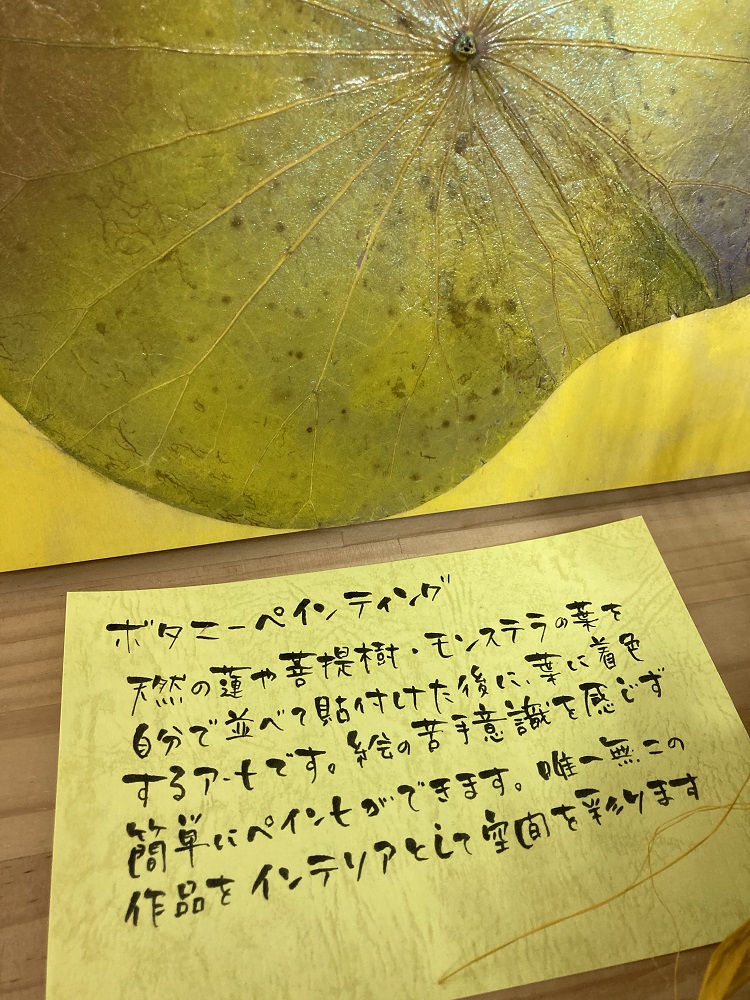 ボタニーペインティング
天然の蓮や菩提樹・モンステラの葉を
自分で並べて貼付けた後に、葉に着色
するアートです。絵の苦手意識を感じず
簡単にペイントができます。唯一無二の
作品をインテリアとして空間を彩ります